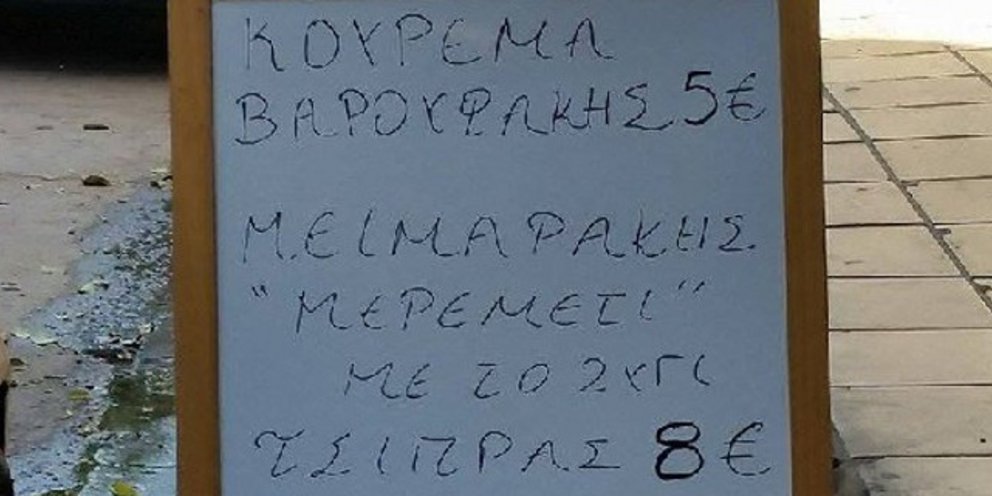 ΚΟΥΡΕΜΑ
ΒΑΡΟΥΦΑΚΗΣ 5€
ΜΕΙΜΑΡΑΚΗΣ
"ΜΕΡΕΜΕΤΙ"
ΜΕ ΤΟ ΖΥΓΙ
ΤΣΙΠΡΑΣ 8€